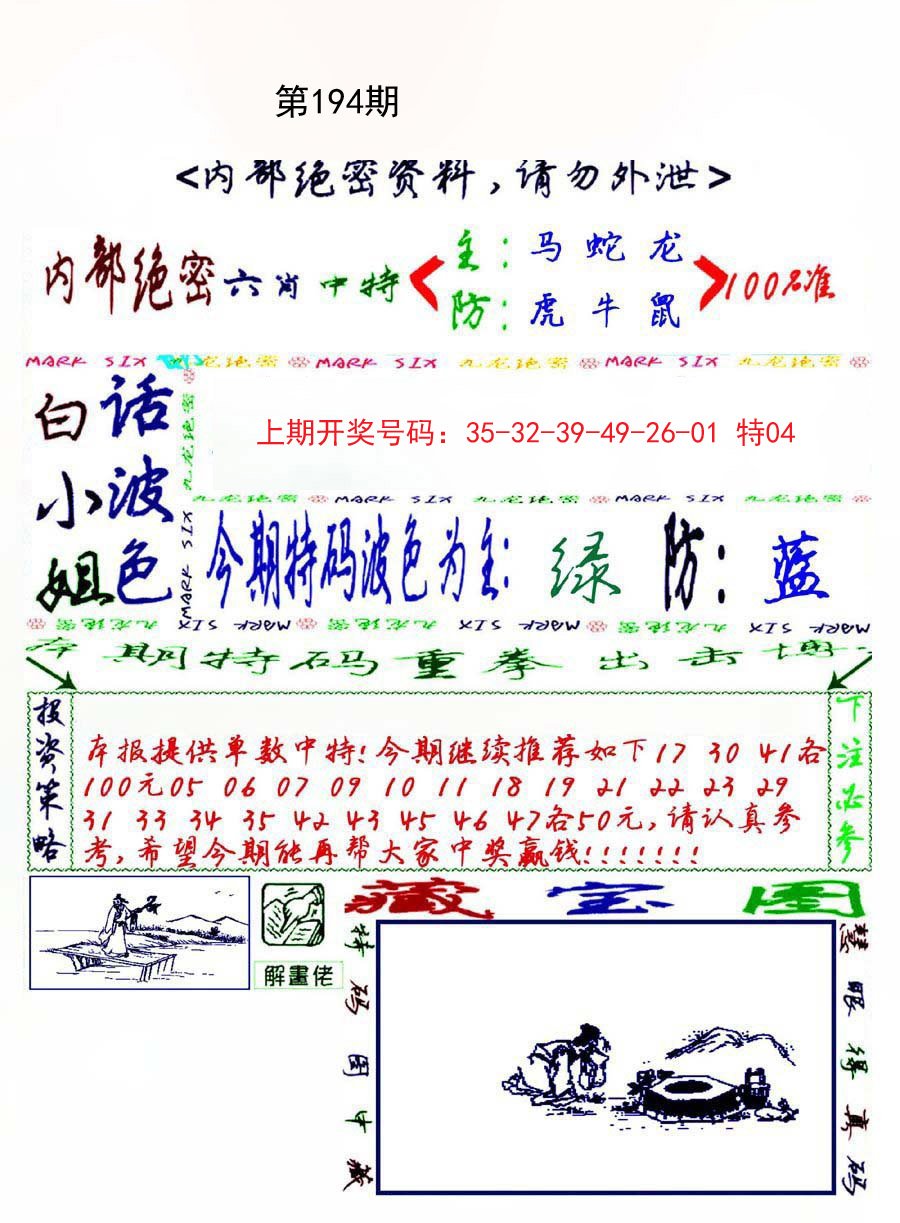 第194期
<内部绝密资料,请勿外泄>
内部绝密六肖中特
主:马 蛇 龙
防:虎 牛 鼠
100%准
MARK SIX 九龙绝密 MARK SIX 九龙绝密 MARK SIX 九龙绝密
九龙绝密 MARK SIX
白话
小波
姐色
上期开奖号码：35-32-39-49-26-01 特04
九龙绝密 MARK SIX 九龙绝密 MARK SIX 九龙绝密
今期特码波色为主:绿 防:蓝
九龙绝密 MARK SIX 九龙绝密 MARK SIX 九龙绝密 MARK SIX
本期特码重拳出击博
投资策略
本报提供单数中特!今期继续推荐如下17 30 41各
100元05 06 07 09 10 11 18 19 21 22 23 29
31 33 34 35 42 43 45 46 47各50元,请认真参
考,希望今期能再帮大家中奖赢钱!!!!!!!
下注必参
解畫佬
藏宝图
特码图中藏
慧眼得真码